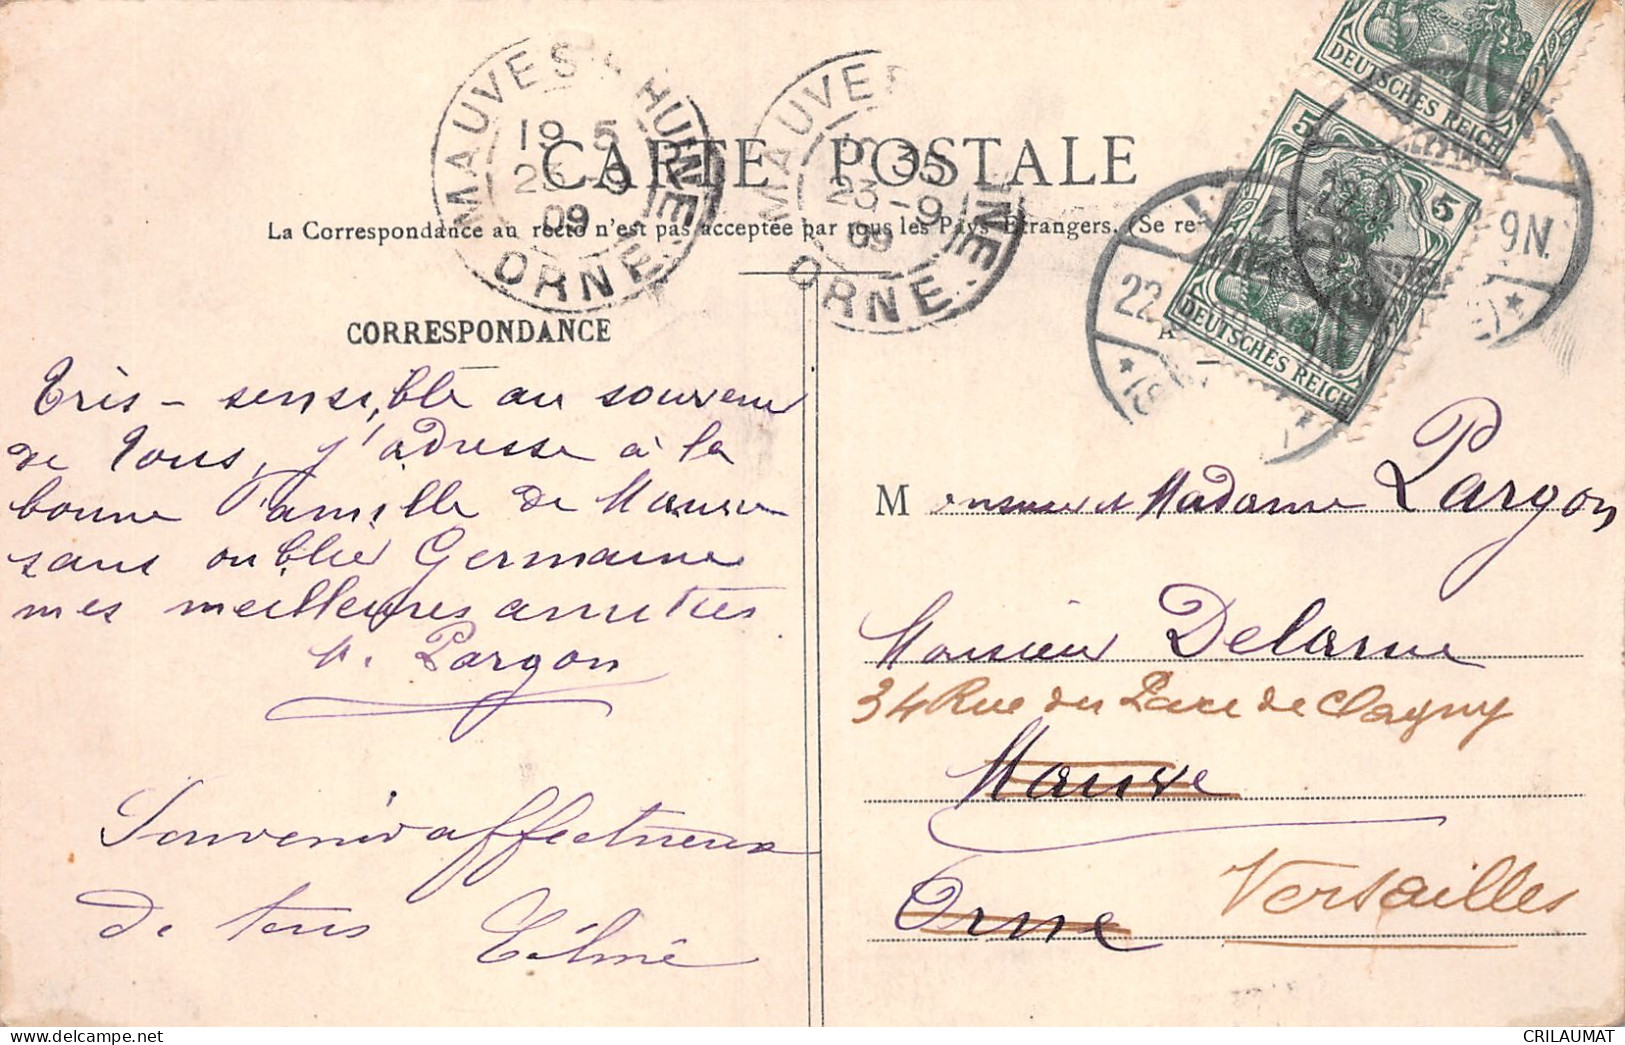 CARTE POSTALE
La Correspondance au recto n'est pas acceptée par tous les Pays Etrangers. (Se re
CORRESPONDANCE
MAUVES-S-HUISNE
19 5
23 -9
09
ORNE
MAUVES
35
23-9
09
NE
ORNE
DEUTSCHES REICH
5 5
DEUTSCHES REICH
22
9N.
Très-sensible au souvenir
de tous, j'adresse à la
bonne famille de Mauve
sans oublier Germaine
mes meilleures amitiés
Pargon
Souvenir affectueux
de tous
Monsieur et Madame Pargon
Monsieur Delarue
34 Rue du Parc de Clagny
Mauve
Orne
Versailles
CRILAUMAT